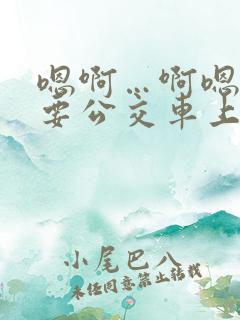 嗯啊…啊嗯
要公交車上
小尾巴八
未經同意禁止轉載